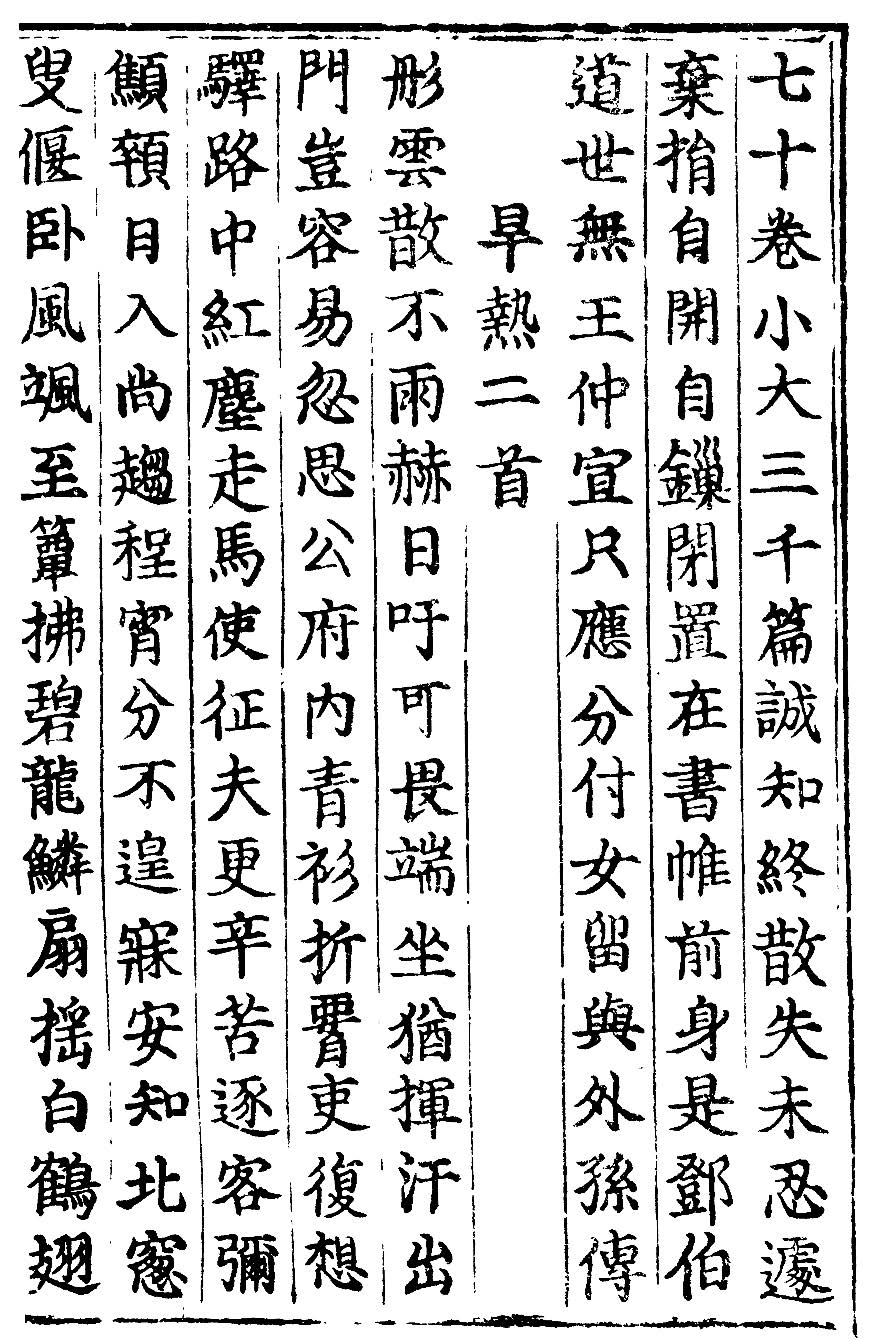 七十卷小大三千篇誠知終散失未忍遽
棄捐自開自鏁閉置在書帷前身是鄧伯
道世無王仲宣只應分付女留與外孫傳
早熱二首
彤雲散不雨赫日吁可畏端坐猶揮汗出
門豈容易忽思公府內青衫折腎吏復想
驛路中紅塵走馬使征夫更辛苦逐客彌
顦顇日入尚趨程宵分不遑寐安知北窓
叟偃卧風颯至簟拂碧龍鱗扇揺白鶴翅